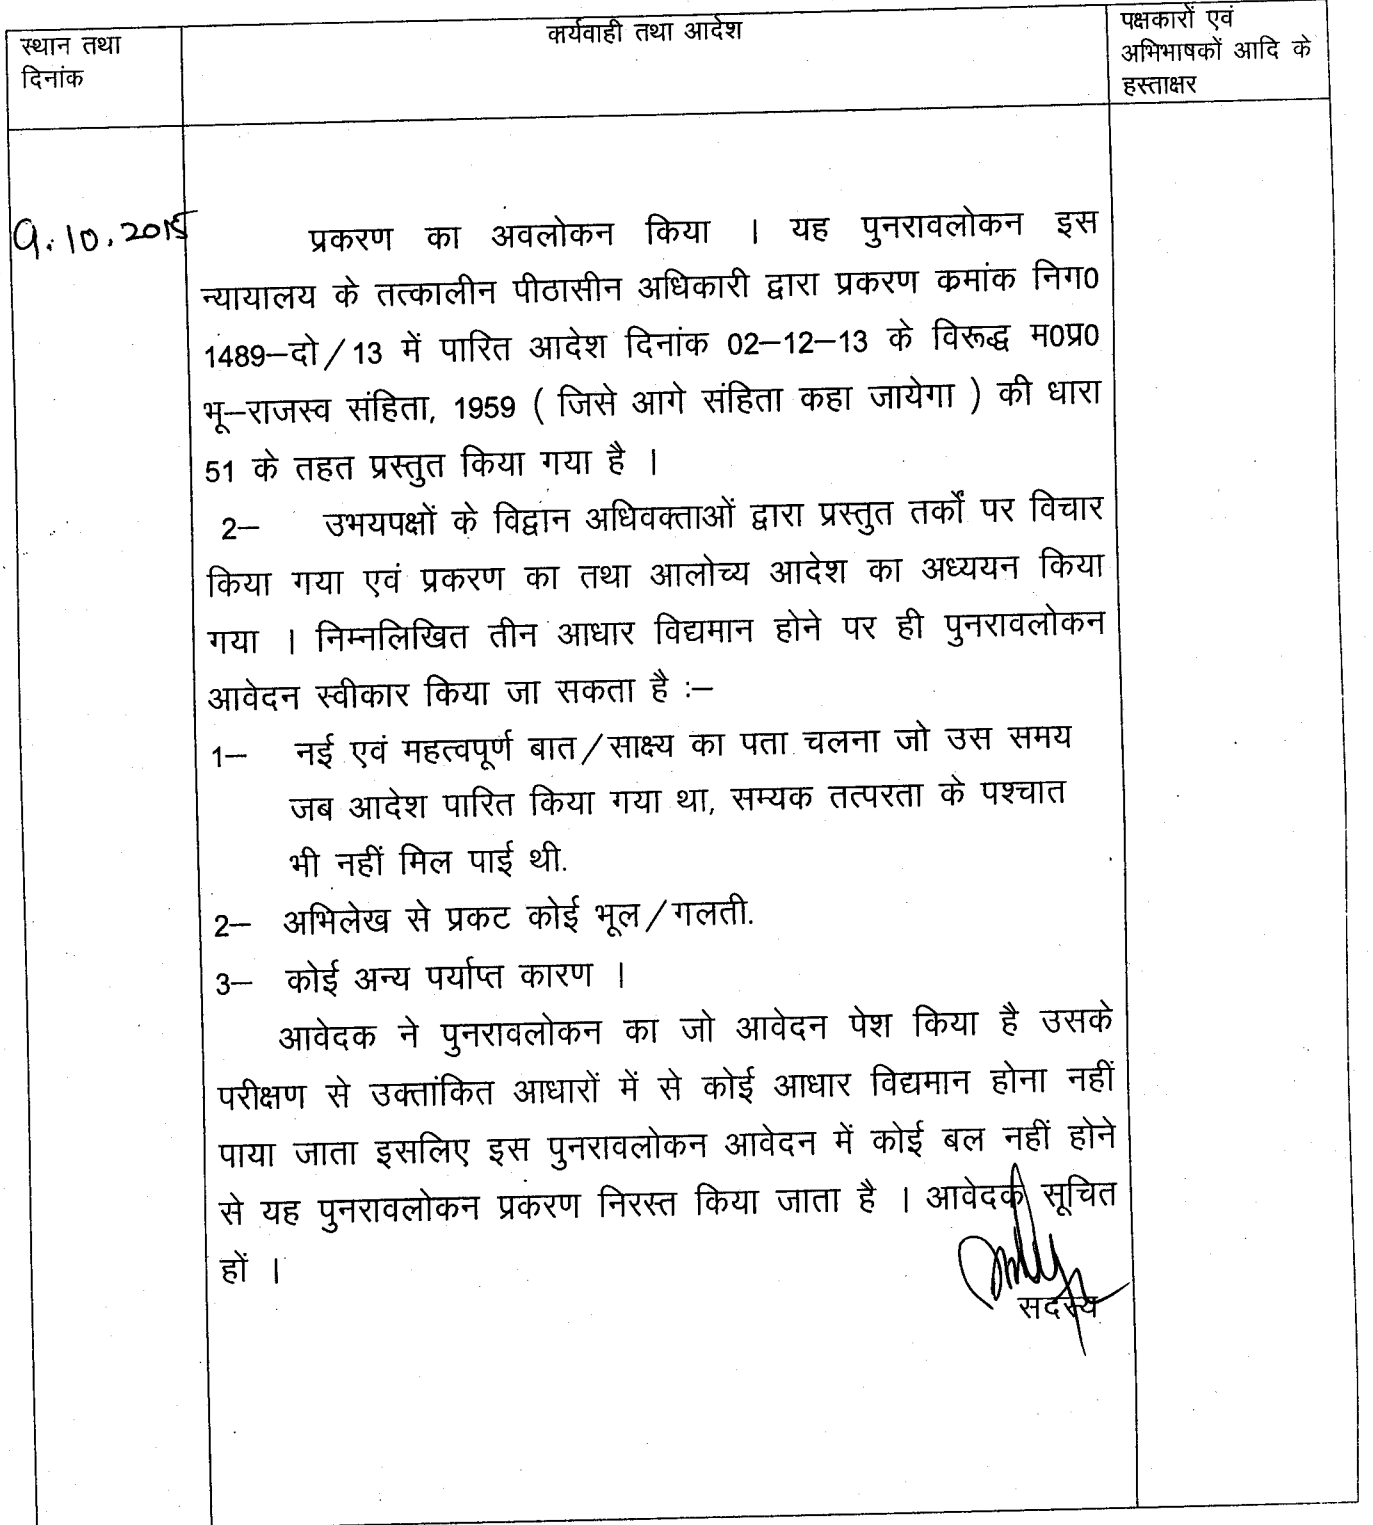 स्थान तथा
दिनांक
कार्यवाही तथा आदेश
पक्षकारों एवं
अभिभाषकों आदि के
हस्ताक्षर
9.10.2015
प्रकरण का अवलोकन किया । यह पुनरावलोकन इस
न्यायालय के तत्कालीन पीठासीन अधिकारी द्वारा प्रकरण क्रमांक निग0
1489–दो/13 में पारित आदेश दिनांक 02–12–13 के विरूद्ध म0प्र0
भू–राजस्व संहिता, 1959 ( जिसे आगे संहिता कहा जायेगा ) की धारा
51 के तहत प्रस्तुत किया गया है ।
2– उभयपक्षों के विद्वान अधिवक्ताओं द्वारा प्रस्तुत तर्कों पर विचार
किया गया एवं प्रकरण का तथा आलोच्य आदेश का अध्ययन किया
गया । निम्नलिखित तीन आधार विद्यमान होने पर ही पुनरावलोकन
आवेदन स्वीकार किया जा सकता है :–
1– नई एवं महत्वपूर्ण बात/साक्ष्य का पता चलना जो उस समय
जब आदेश पारित किया गया था, सम्यक तत्परता के पश्चात
भी नहीं मिल पाई थी.
2– अभिलेख से प्रकट कोई भूल/गलती.
3– कोई अन्य पर्याप्त कारण ।
आवेदक ने पुनरावलोकन का जो आवेदन पेश किया है उसके
परीक्षण से उक्तांकित आधारों में से कोई आधार विद्यमान होना नहीं
पाया जाता इसलिए इस पुनरावलोकन आवेदन में कोई बल नहीं होने
से यह पुनरावलोकन प्रकरण निरस्त किया जाता है । आवेदक सूचित
हों ।
सदस्य